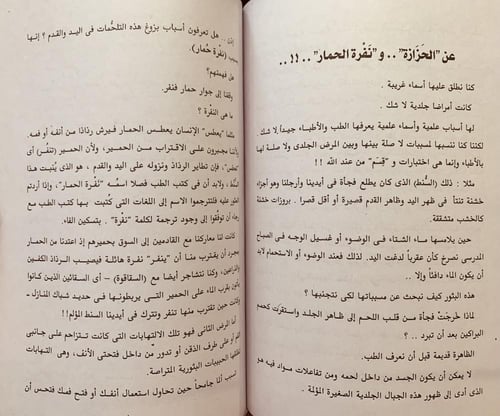 عن "الحَزَازة" .. و "نَفْرة الحمار" .. !! ..
كنا نطلق عليها أسماء غريبة .
كانت أمراضا جلدية لا شك .
لها أسباب علمية وأسماء علمية يعرفها الطب والأطباء جيدا. لا شك
لكننا كنا ننسبها لمسببات لا صلة بينها وبين المرض الجلدى ولا صلة لها
بالأطباء وإنما هى اختبارات و "قِسَم" من عند الله !!
مثلا : ذلك (السُّنط) الذى كان يطلع فجأة فى أيدينا وأرجلنا وهو أجزاء
خشنة تنتأ فى ظهر اليد وظاهر القدم قصيرة أو أقل قصرا . بروزات خشنة
كالخشب متشققة.
حين يلامسها ماء الشتاء فى الوضوء أو غسيل الوجه فى الصباح
المدرسى نصرخ كأن عقرباً لدغت اليد. ولذلك كنا عند الوضوء أو الاستحمام لابد
أن يكون الماء دافئاً وإلا ..
هذه البثور كيف نبحث عن مسبباتها لكى نتجنبها ؟
لماذا خَرجَتْ فجأة من قلب اللحم إلى ظاهر الجلد واستقرت كحمم
البراكين بعد أن تبرد .. ؟
الظاهرة قديمة قبل أن نعرف الطب.
لا يمكن أن يكون الجسد من داخل لحمه ومن تفاعلات مواد فيه هو
الذى أدى إلى ظهور هذه الجبال الجلدية الصغيرة المؤلمة .
إذن : هل تعرفون أسباب بزوغ هذه التلحُّمات فى اليد والقدم ؟ إنها
(نفْرة حُمار).
هل فهمتهم؟
وقفنا إلى جوار حمار فنفر.
ما هى النفْرة ؟
مثلما "يعطس" الإنسان يعطس الحمار فيرش رذاذا من أنفه أو فمه.
ولأننا مجبرون على الاقتراب من الحمير، ولأن الحمير (تنفُر) أى
"يعطس"، فإن تطاير الرذاذ ونزوله على اليد والقدم ، هو الذى يُنبت هذا
السُّنط، ولابد أن فى كتب الطب فصلا اسمُه "نَفْرة الحمار"، وإذا أردتم
أن تُوقفوا إلى وجود ترجمة لكلمة "نَفْرة". بتسكين الفاء.
كانت لنا معاركنا مع القادمين إلى السوق بحميرهم إذا اعتدنا من الحمار
بمجرد أن يقترب منا أن "ينفر" نفرة هائلة فيصيب الرذاذ الكفين
والذراعين، وكنا نتشاجر أيضا مع (السقاقوة) – أى السقائين الذين كانوا
يأتون بقرب الماء على الحمير التى يربطونها فى حديد شباك المنازل -
وكانت حين تقترب منها تنفر وتترك فى أيدينا السنط المؤلم!!
أما المرض الثانى فهو تلك الالتهابات التى كانت تتزاحم على جانبى
أو على طرف الذقن أو تدور من داخل فتحتى الأنف، وهى التهابات
الحبيبات البثورية المتراصة.
ألما جامحاً حين تحاول استعمال أنفك أو فتح فمك فتحس أن